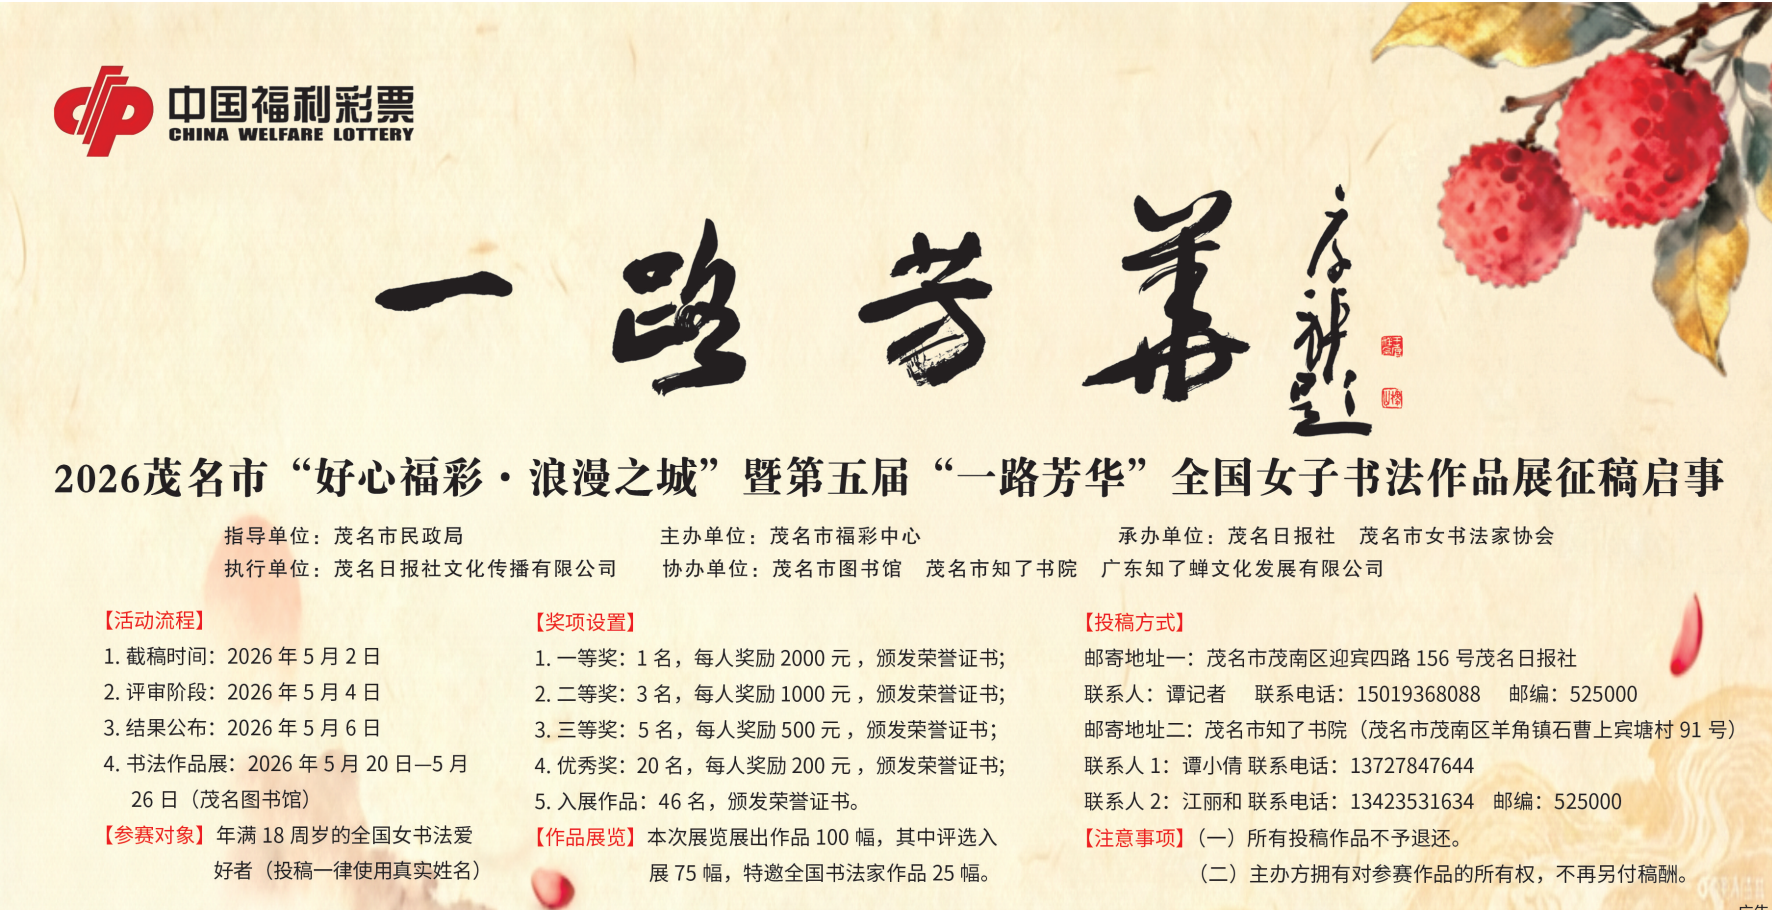 中国福利彩票
CHINA WELFARE LOTTERY
一路芳华
2026茂名市“好心福彩·浪漫之城”暨第五届“一路芳华”全国女子书法作品展征稿启事
指导单位：茂名市民政局 主办单位：茂名市福彩中心 承办单位：茂名日报社 茂名市女书法家协会
执行单位：茂名日报社文化传播有限公司 协办单位：茂名市图书馆 茂名市知了书院 广东知了蝉文化发展有限公司
【活动流程】
1. 截稿时间：2026 年 5 月 2 日
2. 评审阶段：2026 年 5 月 4 日
3. 结果公布：2026 年 5 月 6 日
4. 书法作品展：2026 年 5 月 20 日—5 月
26 日（茂名图书馆）
【参赛对象】年满 18 周岁的全国女书法爱
好者（投稿一律使用真实姓名）
【奖项设置】
1. 一等奖：1 名，每人奖励 2000 元 ，颁发荣誉证书；
2. 二等奖：3 名，每人奖励 1000 元 ，颁发荣誉证书；
3. 三等奖：5 名，每人奖励 500 元 ，颁发荣誉证书；
4. 优秀奖：20 名，每人奖励 200 元 ，颁发荣誉证书；
5. 入展作品：46 名，颁发荣誉证书。
【作品展览】本次展览展出作品 100 幅，其中评选入
展 75 幅，特邀全国书法家作品 25 幅。
【投稿方式】
邮寄地址一：茂名市茂南区迎宾四路 156 号茂名日报社
联系人：谭记者 联系电话：15019368088 邮编：525000
邮寄地址二：茂名市知了书院（茂名市茂南区羊角镇石曹上宾塘村 91 号）
联系人 1：谭小倩 联系电话：13727847644
联系人 2：江丽和 联系电话：13423531634 邮编：525000
【注意事项】（一）所有投稿作品不予退还。
（二）主办方拥有对参赛作品的所有权，不再另付稿酬。